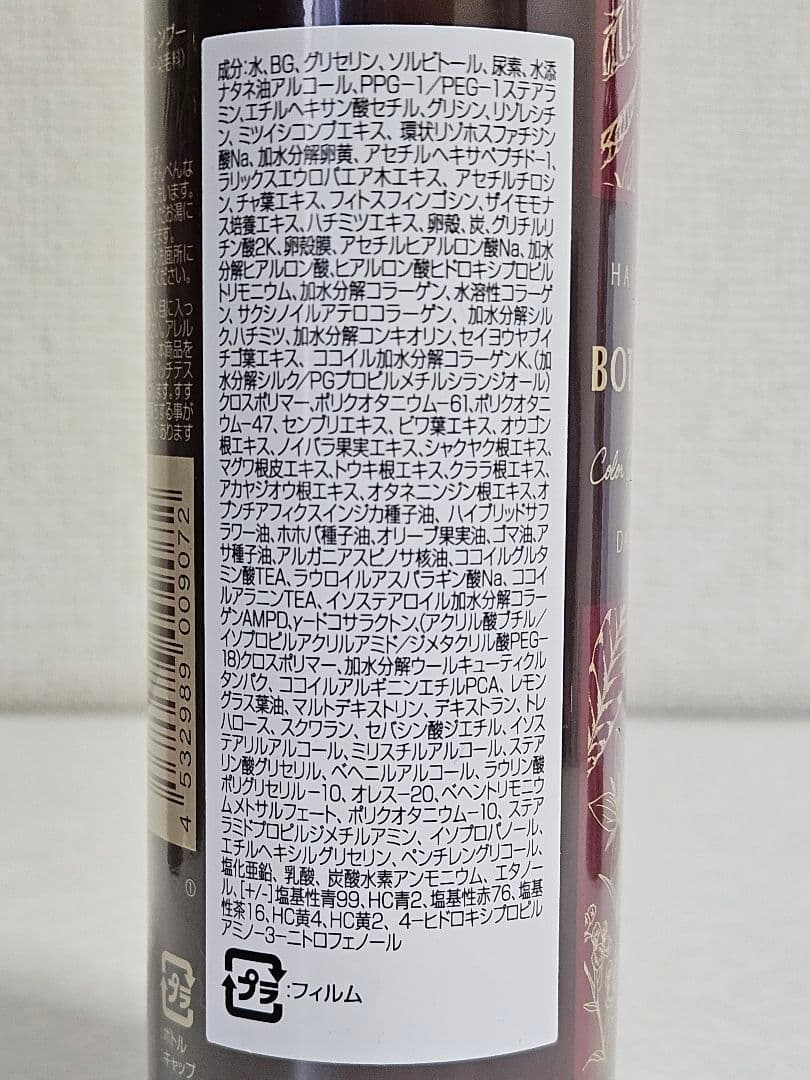 成分:水、BG、グリセリン、ソルビトール、尿素、水添
ナタネ油アルコール、PPG-1/PEG-1ステアラ
ミン、エチルヘキサン酸セチル、グリシン、リゾレシチ
ン、ミツイシコンブエキス、環状リゾホスファチジン
酸Na、加水分解卵黄、アセチルヘキサペプチド-1、
ラリックスエウロパエア木エキス、アセチルチロシ
ン、チャ葉エキス、フィトスフィンゴシン、ザイモモナ
ス培養エキス、ハチミツエキス、卵殻、炭、グリチルリ
チン酸2K、卵殻膜、アセチルヒアルロン酸Na、加水
分解ヒアルロン酸、ヒアルロン酸ヒドロキシプロピル
トリモニウム、加水分解コラーゲン、水溶性コラーゲ
ン、サクシノイルアテロコラーゲン、加水分解シル
ク、ハチミツ、加水分解コンキオリン、セイヨウヤブイ
チゴ葉エキス、ココイル加水分解コラーゲンK、(加
水分解シルク/PGプロピルメチルシランジオール)
クロスポリマー、ポリクオタニウム-61、ポリクオタニ
ウム-47、センブリエキス、ビワ葉エキス、オウゴン
根エキス、ノイバラ果実エキス、シャクヤク根エキス、
マグワ根皮エキス、トウキ根エキス、クララ根エキス、
アカヤジオウ根エキス、オタネニンジン根エキス、オ
プンチアフィクスインジカ種子油、ハイブリッドサフ
ラワー油、ホホバ種子油、オリーブ果実油、ゴマ油、ア
サ種子油、アルガニアスピノサ核油、ココイルグルタ
ミン酸TEA、ラウロイルアスパラギン酸Na、ココイ
ルアラニンTEA、イソステアロイル加水分解コラー
ゲンAMPD、γ-ドコサラクトン、(アクリル酸ブチル/
イソプロピルアクリルアミド/ジメタクリル酸PEG-
18)クロスポリマー、加水分解ウールキューティクル
タンパク、ココイルアルギニンエチルPCA、レモン
グラス葉油、マルトデキストリン、デキストラン、トレ
ハロース、スクワラン、セバシン酸ジエチル、イソス
テアリルアルコール、ミリスチルアルコール、ステア
リン酸グリセリル、ベヘニルアルコール、ラウリン酸
ポリグリセリル-10、オレス-20、ベヘントリモニウ
ムメトサルフェート、ポリクオタニウム-10、ステア
ラミドプロピルジメチルアミン、イソプロパノール、
エチルヘキシルグリセリン、ペンチレングリコール、
塩化亜鉛、乳酸、炭酸水素アンモニウム、エタノー
ル、[+/-]塩基性青99、HC青2、塩基性赤76、塩基
性茶16、HC黄4、HC黄2、4-ヒドロキシプロピル
アミノ-3-ニトロフェノール
プラ:フィルム
4 532989 009072
①
プラ
ボトル
キャップ
HA
BOT
Color
D